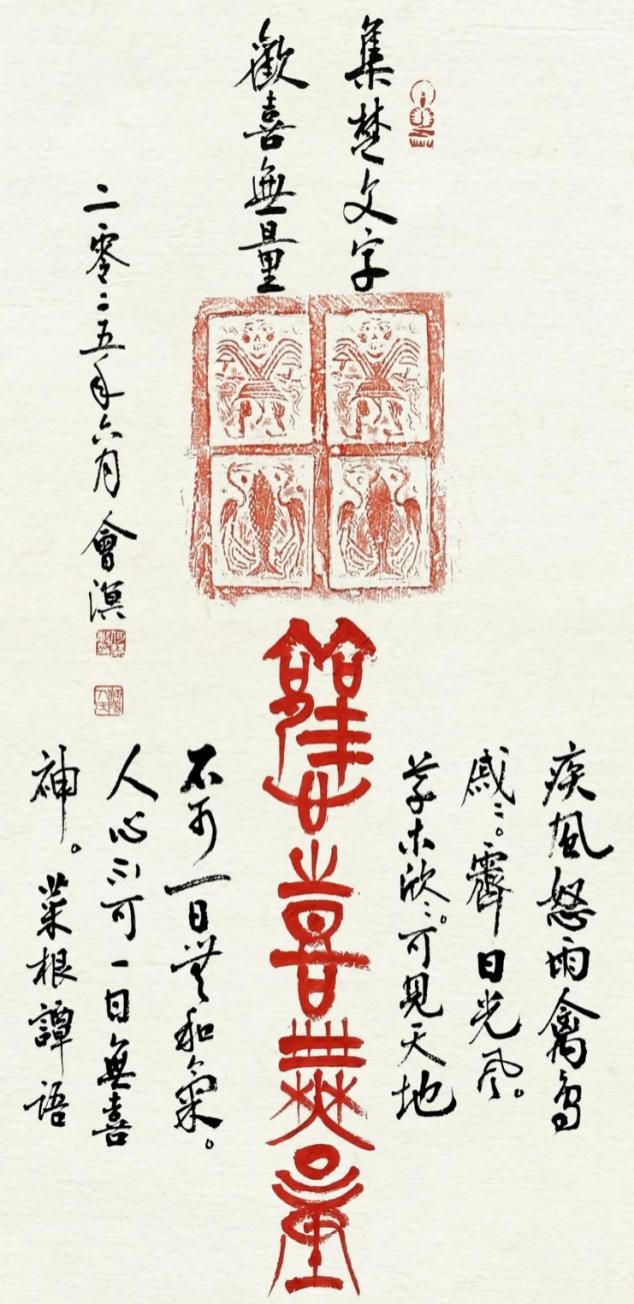 集楚文字
歡喜無量
二零二五年六月 會溟
疾風怒雨禽鳥
戚々。霽日光風。
草木欣々。可見天地
歡喜無量
不可一日無和氣。
人心不可一日無喜
神。菜根譚語